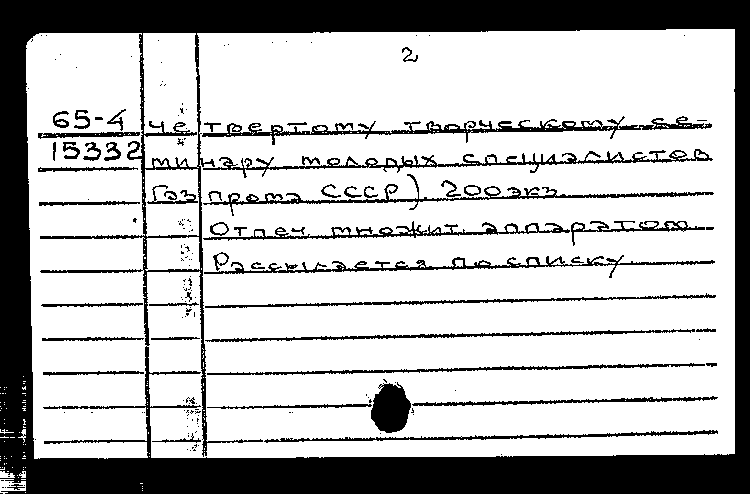 2
65-4 четвертому творческому се-
15332 минару молодых специалистов
Газпрома СССР). 200экз.
Отпеч. множит. аппаратом.
Рассылается по списку.